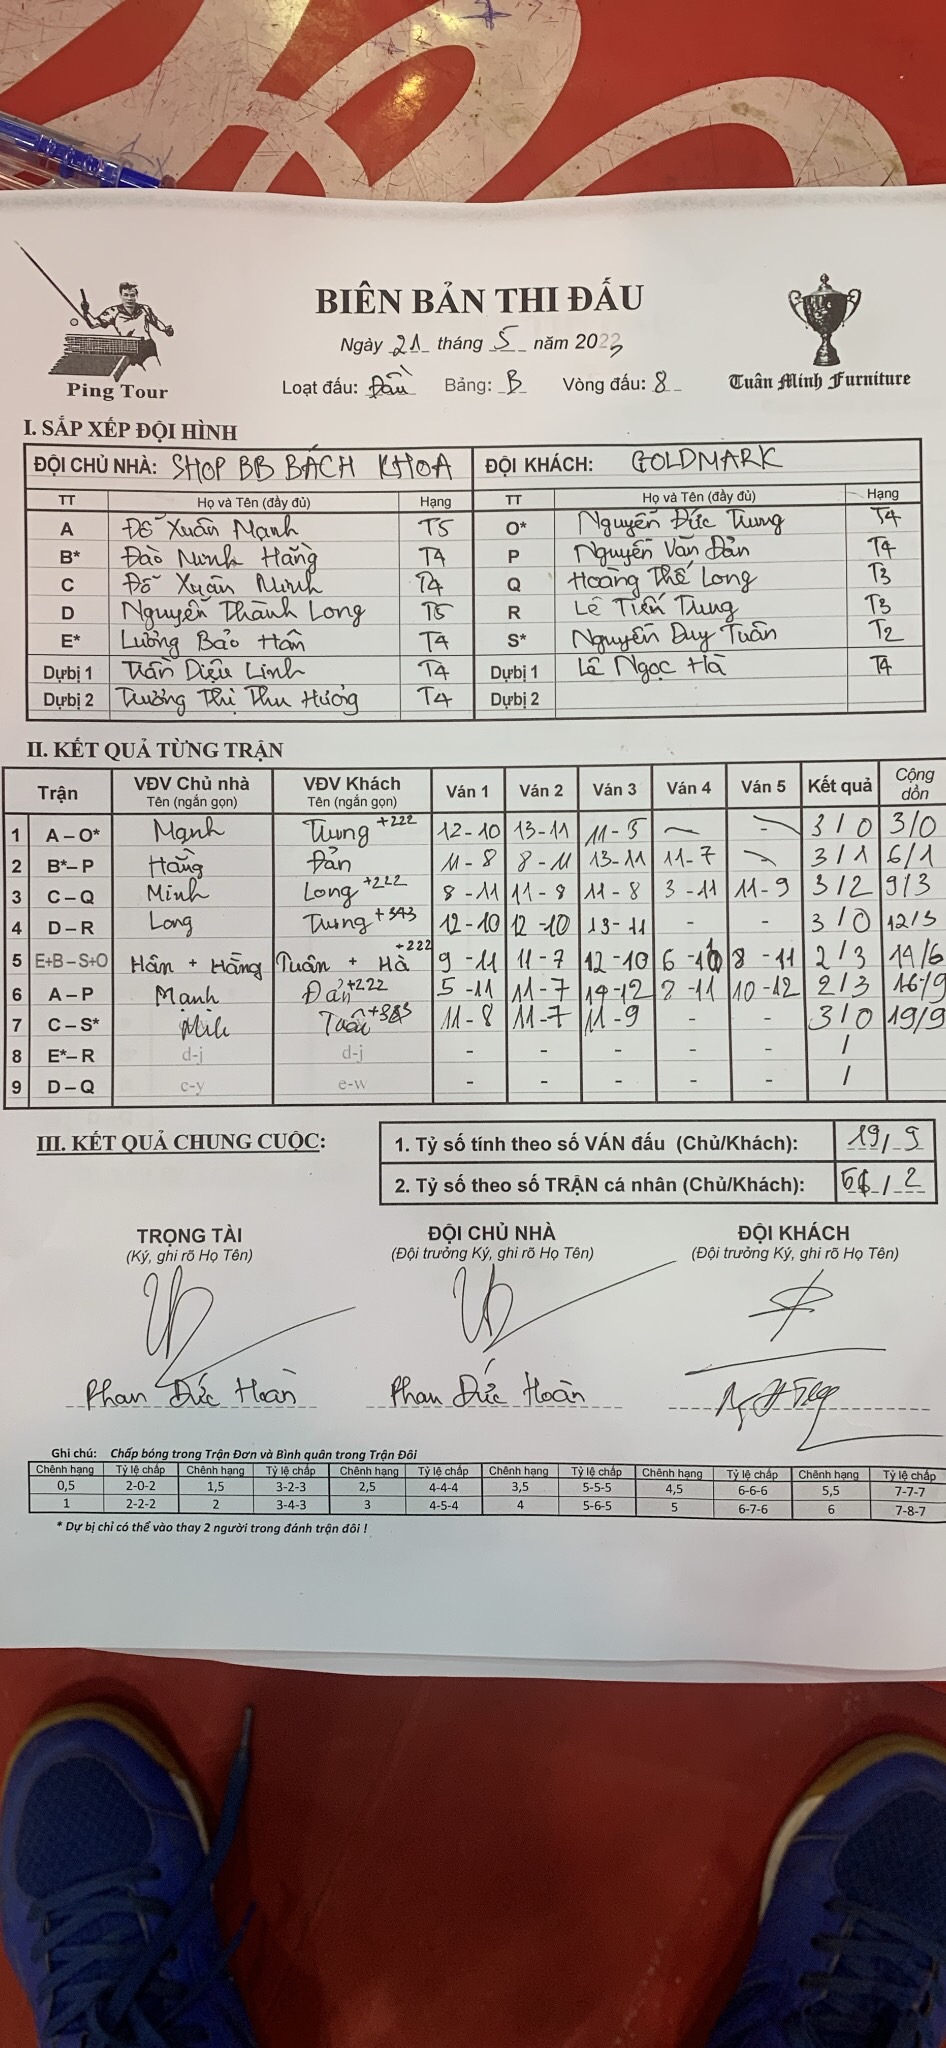 BIÊN BẢN THI ĐẤU
Ping Tour
Tuấn Minh Furniture
Ngày 21 tháng 5 năm 2023
Loạt đấu: Đầu Bảng: B Vòng đấu: 8
I. SẮP XẾP ĐỘI HÌNH
ĐỘI CHỦ NHÀ: SHOP BB BÁCH KHOA ĐỘI KHÁCH: GOLDMARK
TT Họ và Tên (đầy đủ) Hạng TT Họ và Tên (đầy đủ) Hạng
A Đỗ Xuân Mạnh T5 O* Nguyễn Đức Trung T4
B* Đào Ninh Hằng T4 P Nguyễn Văn Đản T4
C Đỗ Xuân Minh T4 Q Hoàng Thế Long T3
D Nguyễn Thành Long T5 R Lê Tiến Trung T3
E* Lương Bảo Hân T4 S* Nguyễn Duy Tuấn T2
Dự bị 1 Trần Diệu Linh T4 Dự bị 1 Lê Ngọc Hà T4
Dự bị 2 Trương Thị Thu Hương T4 Dự bị 2
II. KẾT QUẢ TỪNG TRẬN
Trận VĐV Chủ nhà VĐV Khách Ván 1 Ván 2 Ván 3 Ván 4 Ván 5 Kết quả Cộng dồn
Tên (ngắn gọn) Tên (ngắn gọn)
1 A – O* Mạnh Trung +222 12-10 13-11 11-5 - - 3/0 3/0
2 B*– P Hằng Đản 11-8 8-11 13-11 11-7 - 3/1 6/1
3 C – Q Minh Long +222 8-11 11-8 11-8 3-11 11-9 3/2 9/3
4 D – R Long Trung +343 12-10 12-10 13-11 - - 3/0 12/3
5 E+B – S+O Hân + Hằng Tuấn + Hà +222 9-11 11-7 12-10 6-11 8-11 2/3 14/6
6 A – P Mạnh Đản +222 5-11 11-7 14-12 8-11 10-12 2/3 16/9
7 C – S* Minh Tuấn 11-8 11-7 11-9 - - 3/0 19/9
8 E*– R d-j d-j - - - - - /
9 D – Q c-y e-w - - - - - /
III. KẾT QUẢ CHUNG CUỘC:
1. Tỷ số tính theo số VÁN đấu (Chủ/Khách): 19/9
2. Tỷ số theo số TRẬN cá nhân (Chủ/Khách): 5/2
TRỌNG TÀI ĐỘI CHỦ NHÀ ĐỘI KHÁCH
(Ký, ghi rõ Họ Tên) (Đội trưởng Ký, ghi rõ Họ Tên) (Đội trưởng Ký, ghi rõ Họ Tên)
Phan Đức Hoàn Phan Đức Hoàn
Ghi chú: Chấp bóng trong Trận Đơn và Bình quân trong Trận Đôi
Chênh hạng Tỷ lệ chấp Chênh hạng Tỷ lệ chấp Chênh hạng Tỷ lệ chấp Chênh hạng Tỷ lệ chấp Chênh hạng Tỷ lệ chấp Chênh hạng Tỷ lệ chấp
0,5 2-0-2 1,5 3-2-3 2,5 4-4-4 3,5 5-5-5 4,5 6-6-6 5,5 7-7-7
1 2-2-2 2 3-4-3 3 4-5-4 4 5-6-5 5 6-7-6 6 7-8-7
* Dự bị chỉ có thể vào thay 2 người trong đánh trận đôi !